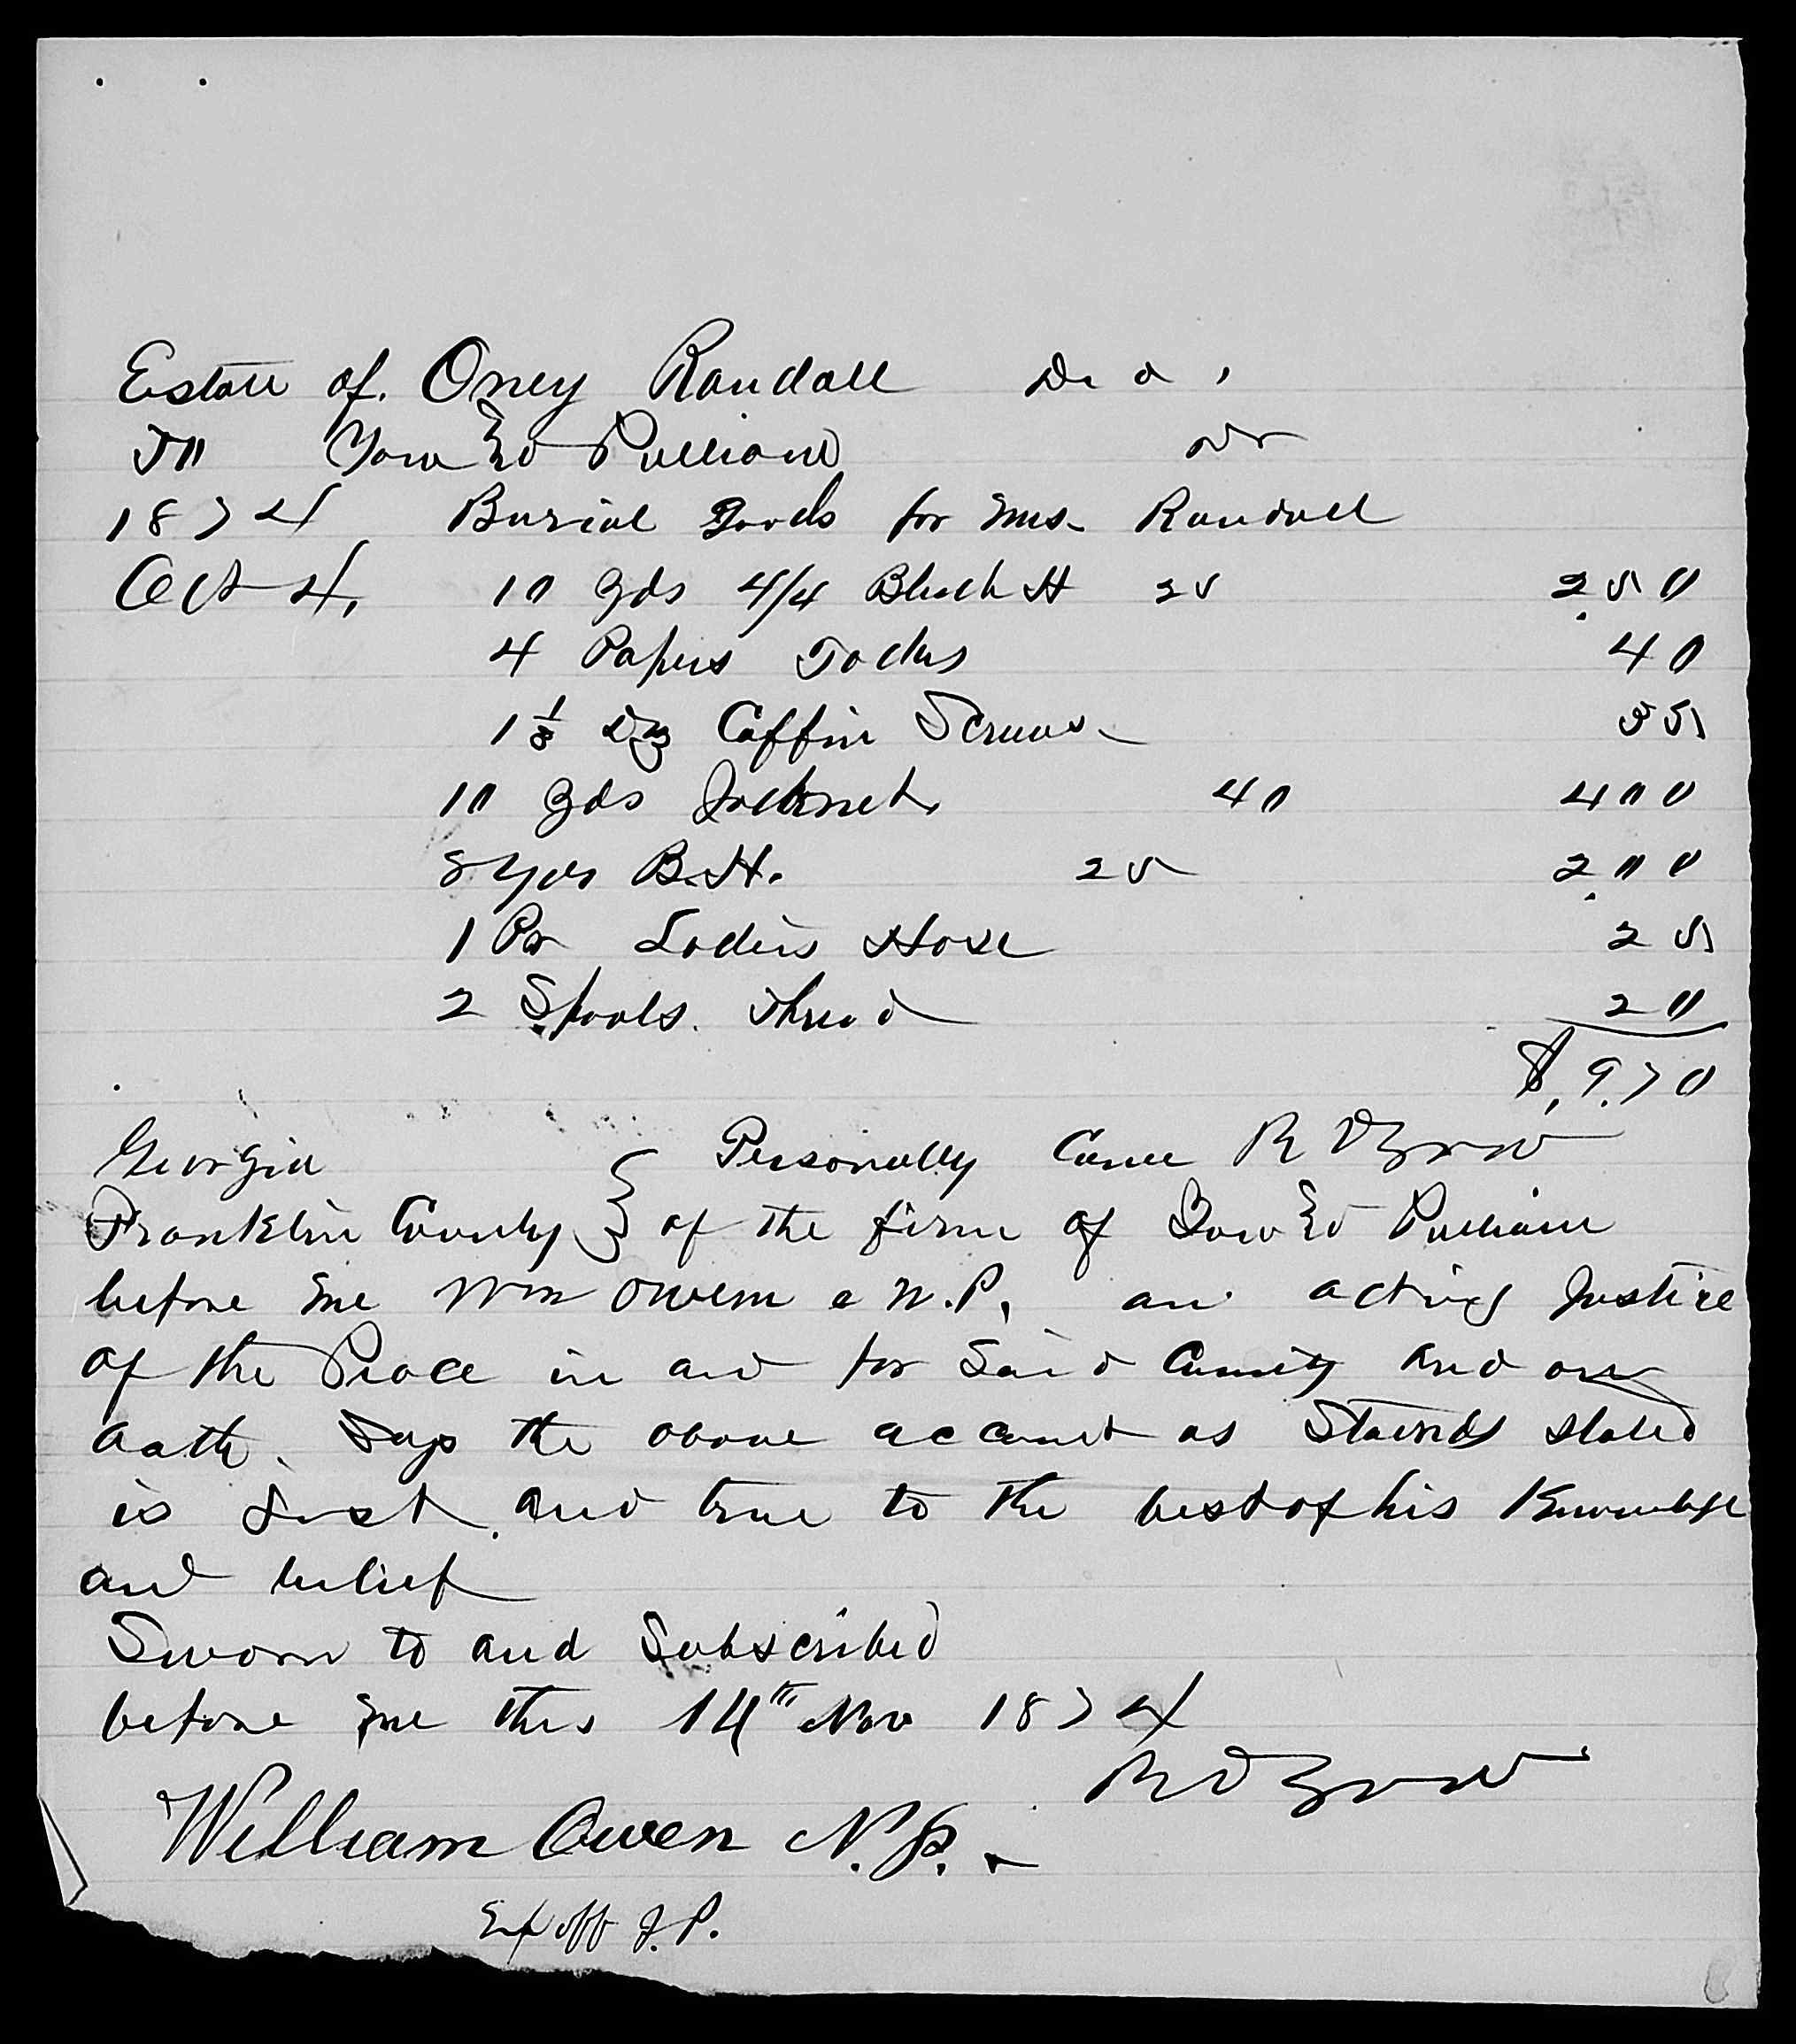 Estate of. Oney Randall Decd,
To Yow & Pulliam Dr
1874 Burial goods for Mrs. Randall
Oct 4, 10 yds 4/4 Bleach H 25 2.50
4 Papers Tacks 40
1 1/3 Dz Coffin Screws 35
10 yds Jackonet 40 4 00
8 yds B.H. 25 2.00
1 Pr Ladies Hose 25
2 Spools. Thread 20
$, 9.70
Georgia } Personally Came R D Yow
Franklin County } of the firm of Yow & Pulliam
before me Wm Owen a N.P. an acting Justice
of the Peace in and for Said County and on
oath. Says the above account as stated
is Just and true to the best of his Knowledge
and belief
Sworn to and Subscribed
before me this 14th Nov 1874
R D Yow
William Owen N.P.
Ex off J.P.